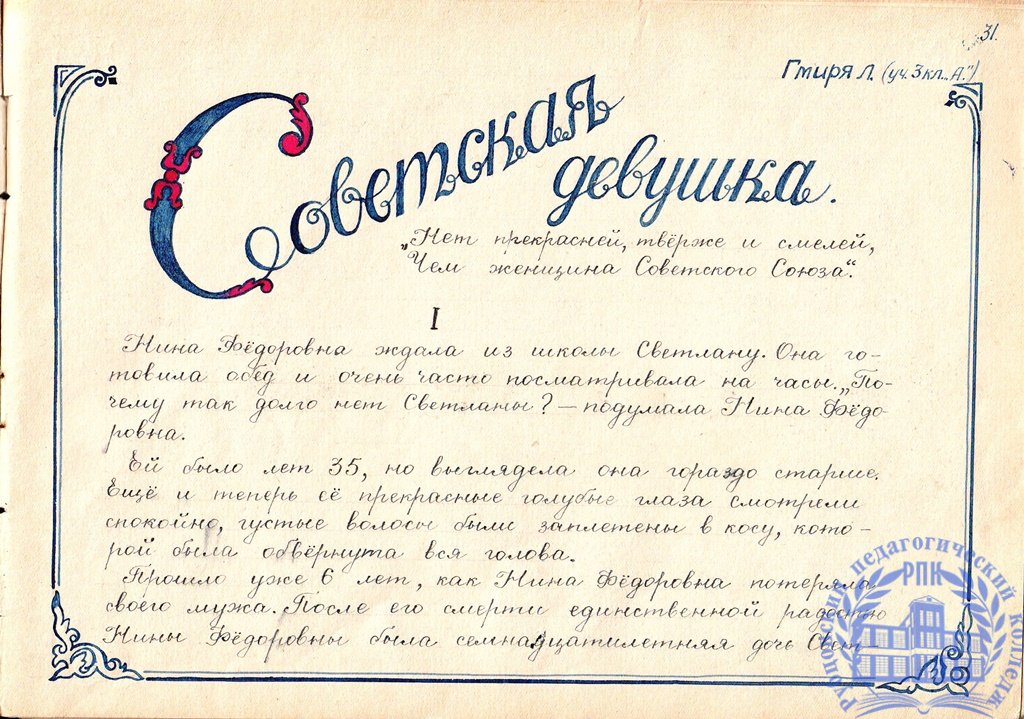 31.
Гмиря Л. (уч. 3 кл. „А")
Советская
девушка.
„Нет прекрасней, твёрже и смелей,
Чем женщина Советского Союза".
I
Нина Фёдоровна ждала из школы Светлану. Она го-
товила обед и очень часто посматривала на часы. „По-
чему так долго нет Светланы? — подумала Нина Фёдо-
ровна.
Ей было лет 35, но выглядела она гораздо старше.
Ещё и теперь её прекрасные голубые глаза смотрели
спокойно, густые волосы были заплетены в косу, кото-
рой была обвёрнута вся голова.
Прошло уже 6 лет, как Нина Фёдоровна потеряла
своего мужа. После его смерти единственной радостью
Нины Фёдоровны была семнадцатилетняя дочь Свет-
педагогический колледж
РПК